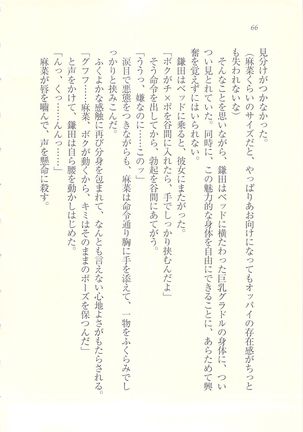 66
見分けがつかなかった。
(麻菜くらいのサイズだと、やっぱりあお向けになってもオッパイの存在感がちっと
も失われないな)
そんなことを思いながら、鎌田はベッドに横たわった巨乳グラドルの身体に、つい
つい見とれていた。同時に、この魅力的な身体を自由にできることに、あらためて興
奮を覚えずにはいられない。
鎌田はベッドに乗ると、彼女にまたがった。
「ボクがチ×ポを谷間に入れたら、手でしっかり挟むんだよ」
そう命令を出してから、勃起を谷間にあてがう。
「ううっ、嫌なのに……このッ」
涙目で悪態をつきながらも、麻菜は命令通り胸に手を添えて、一物をふくらみでし
っかりと挟みこんだ。
ふくよかな感触に再び分身を包まれて、なんとも言えない心地よさがもたらされる。
「グフフ……麻菜、ボクが動くから、キミはそのままのポーズを保つんだ」
と声をかけて、鎌田は自ら腰を動かしはじめた。
「んっ、くっ……んんっ……」
麻菜が唇を噛んで、声を懸命に殺す。